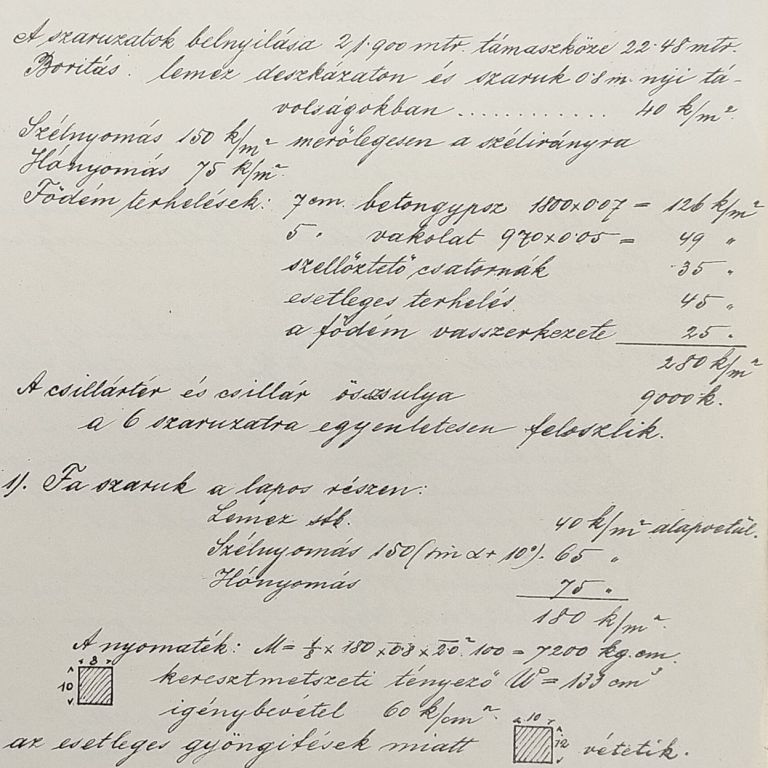 A szaruzatok belnyilása 21.900 mtr. támaszköze 22.48 mtr.
Boritás. lemez deszkázaton és szaruk 0.8 m. nyi tá-
volságokban ............. 40 k/m².
Szélnyomás 150 k/m² merőlegesen a szélirányra
Hónyomás 75 k/m².
Födém terhelések: 7 cm. betongypsz 1800×0.07 = 126 k/m²
5 " vakolat 970×0.05 = 49 "
szellőztető csatornák 35 "
esetleges terhelés 45 "
a födém vasszerkezete 25 "
280 k/m²
A csillártér és csillár összsulya 9000 k.
a 6 szaruzatra egyenletesen feloszlik.
1). Fa szaruk a lapos részen:
Lemez stb. 40 k/m² alapvetül.
Szélnyomás 150 (sin α + 10°). 65 "
Hónyomás 75 "
180 k/m².
A nyomaték: M = 1/8 × 180 × 0.8 × 2.0² 100 = 7200 kg. cm.
8
10
keresztmetszeti tényező W = 133 cm³
igénybevétel 60 k/cm².
az esetleges gyöngitések miatt 10 12 vétetik.